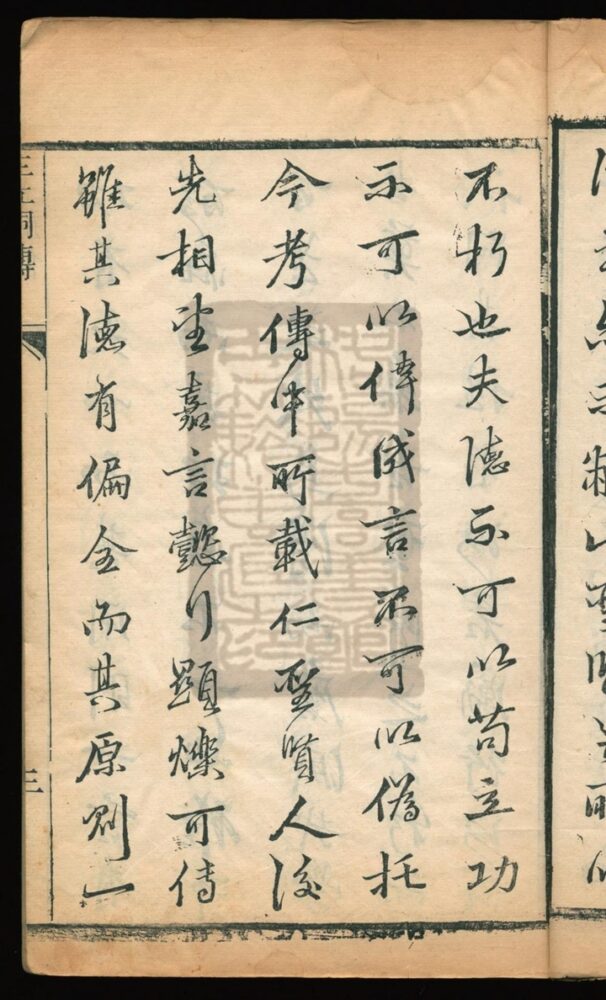 不朽也夫德不可以苟立功
不可以倖成言不可以偽托
今考傳中所載仁聖賢人後
先相望嘉言懿行顯爍可傳
雖其德有偏全而其原則一
三立祠傳
三